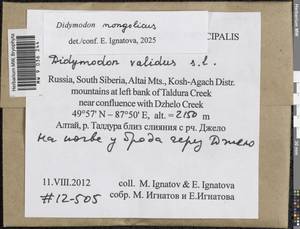 Didymodon mongolicus
det./conf. E. Ignatova, 2025
CIPALIS
Didymodon validus s.l.
Russia, South Siberia, Altai Mts., Kosh-Agach Distr.
mountains at left bank of Taldura Creek
near confluence with Dzhelo Creek
49°57' N - 87°50' E, alt. = 2150 m
Алтай, р. Талдура близ слияния с рч. Джело
на почве у брода через Джело
11.VIII.2012
coll. M. Ignatov & E. Ignatova
#12-505
собр. М. Игнатов и Е.Игнатова
Herbarium MW, Bryophyta